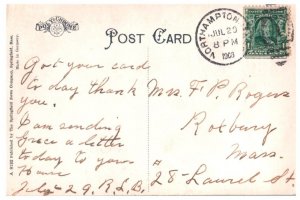 POST CARD
NORTHAMPTON
JUL 29
8 PM
1908
A POST Published by The Springfield News Company, Springfield, Mass.
Made in Germany
Got your card
to day thank
you.
I am sending
Grace a letter
today to your
House
July 29. R.L.B.
Mrs. F. P. Rogers
Roxbury
Mass.
28- Laurel St.